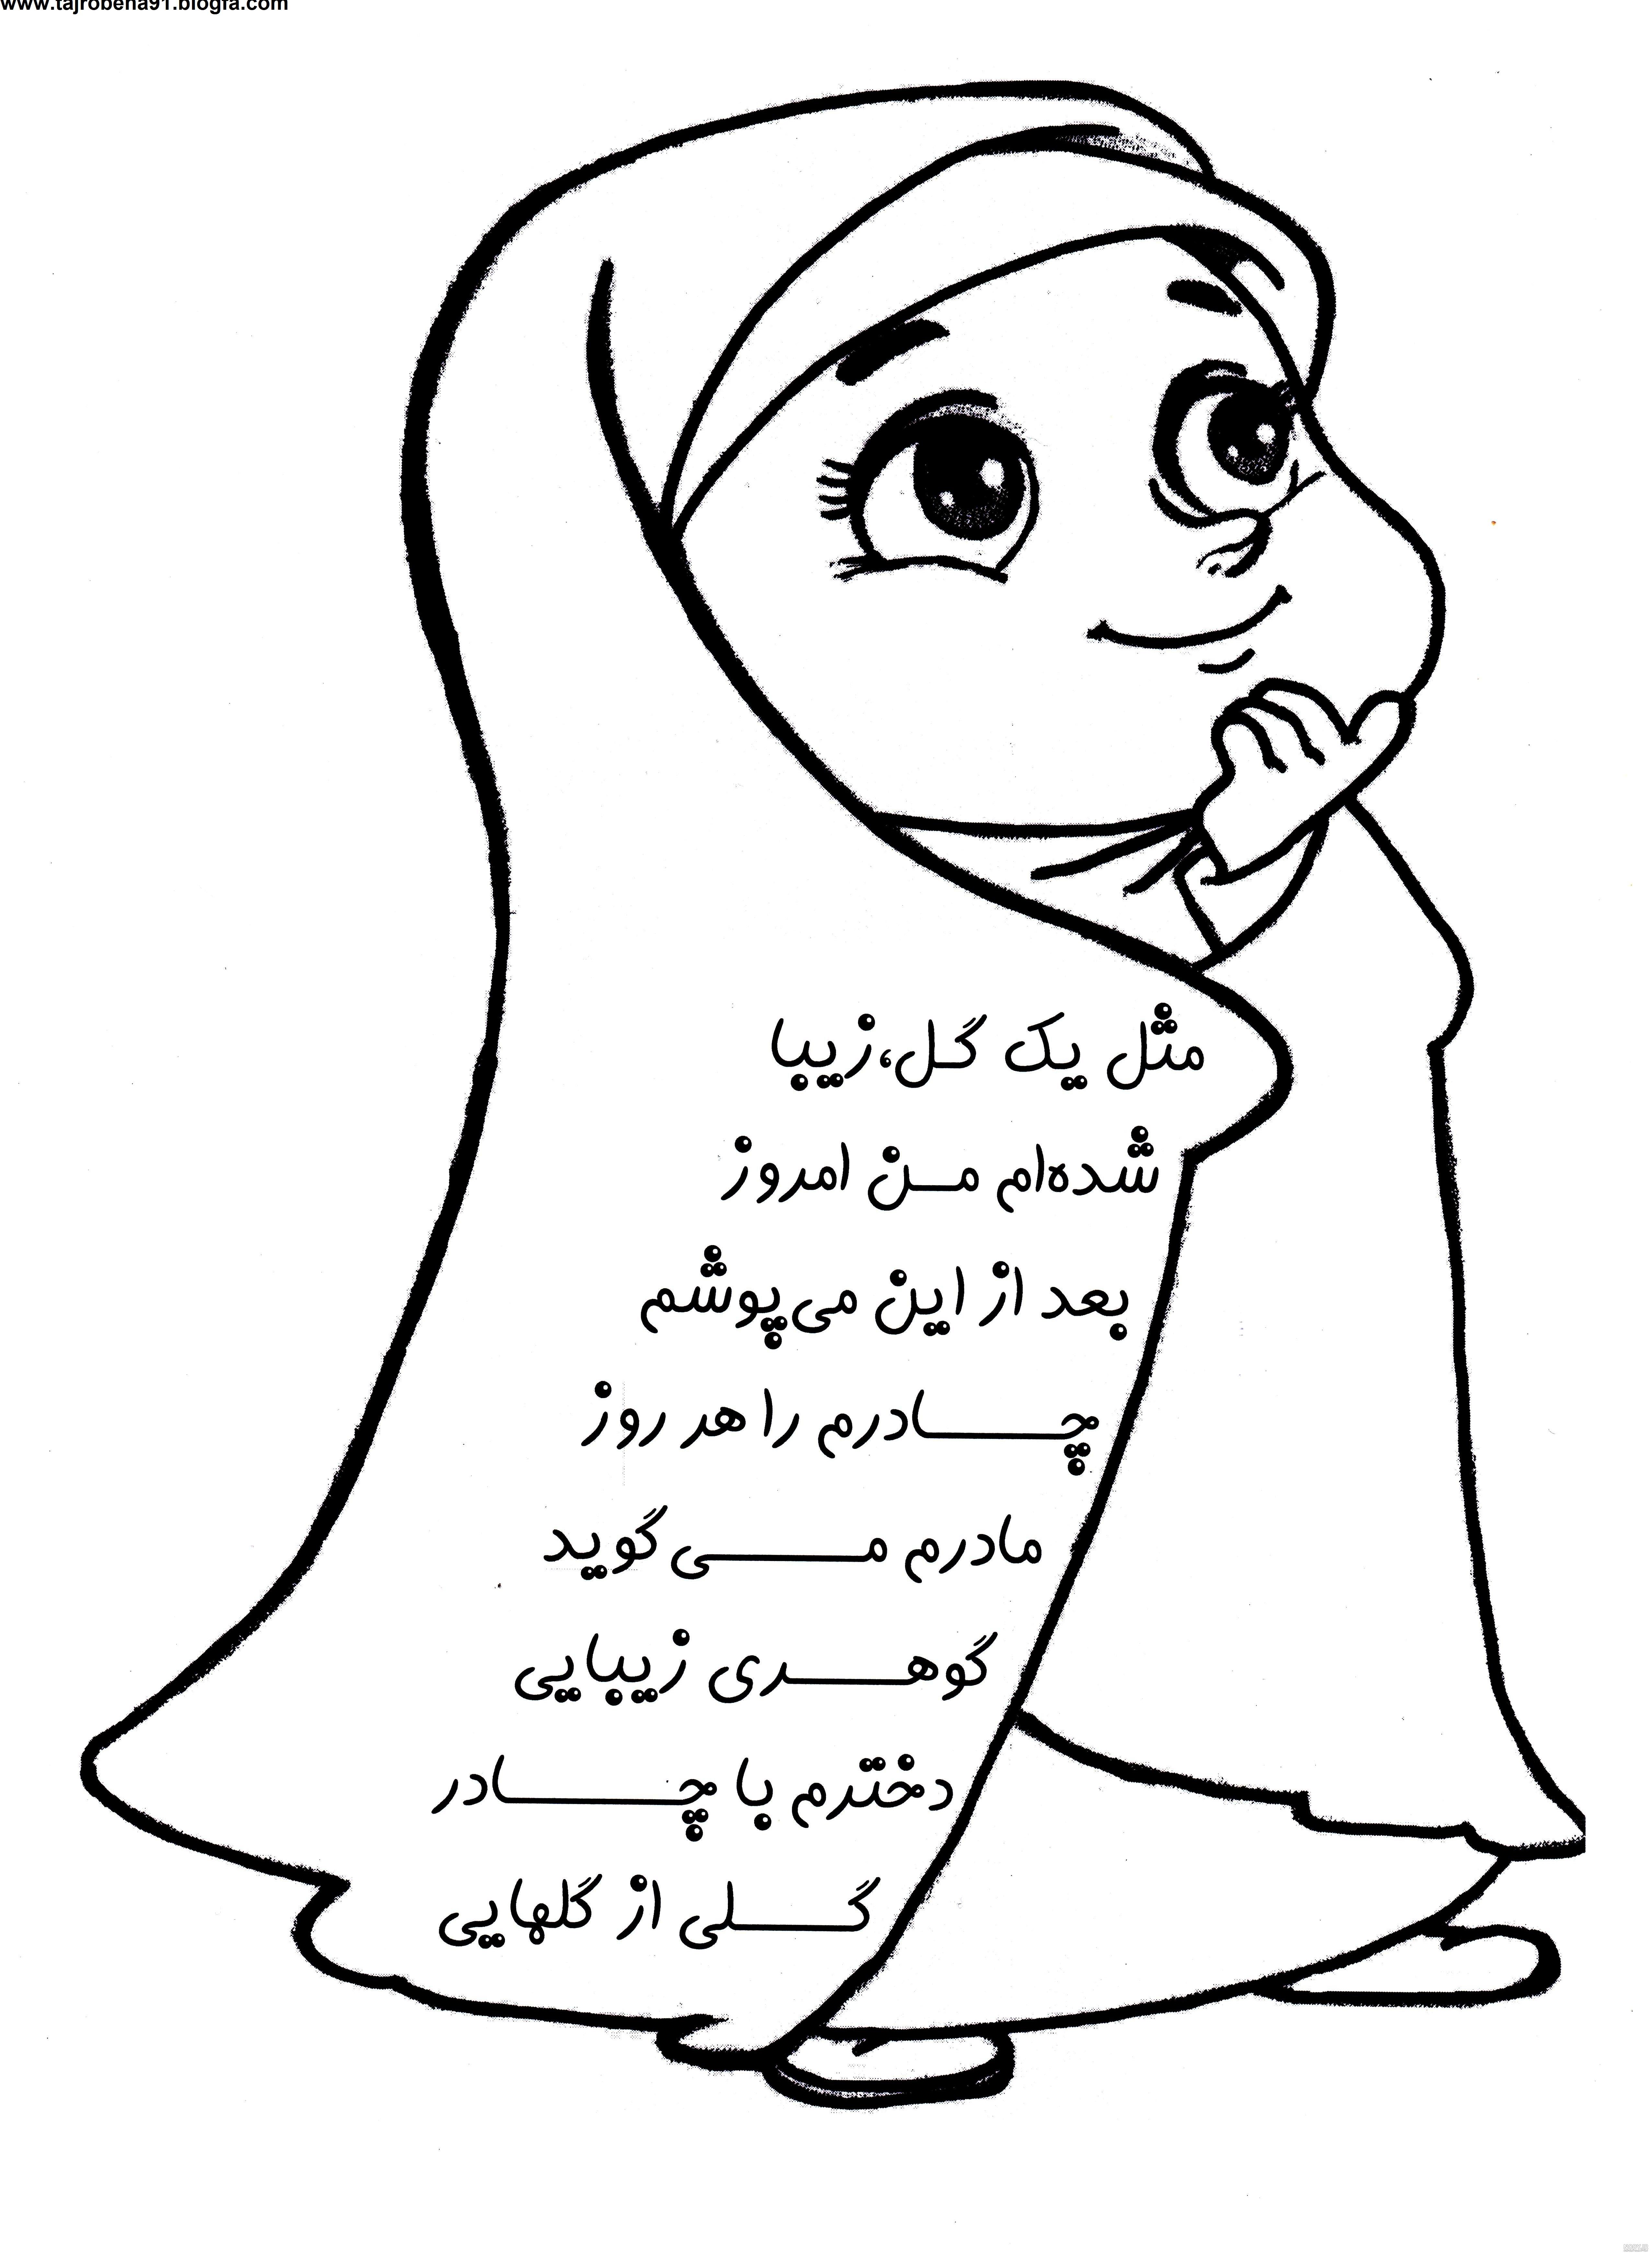 www.tajrobeha91.blogfa.com
مثل یک گل،زیبا
شده‌ام من امروز
بعد از این می‌پوشم
چادرم را هر روز
مادرم می‌گوید
گوهری زیبایی
دخترم با چادر
گلی از گلهایی